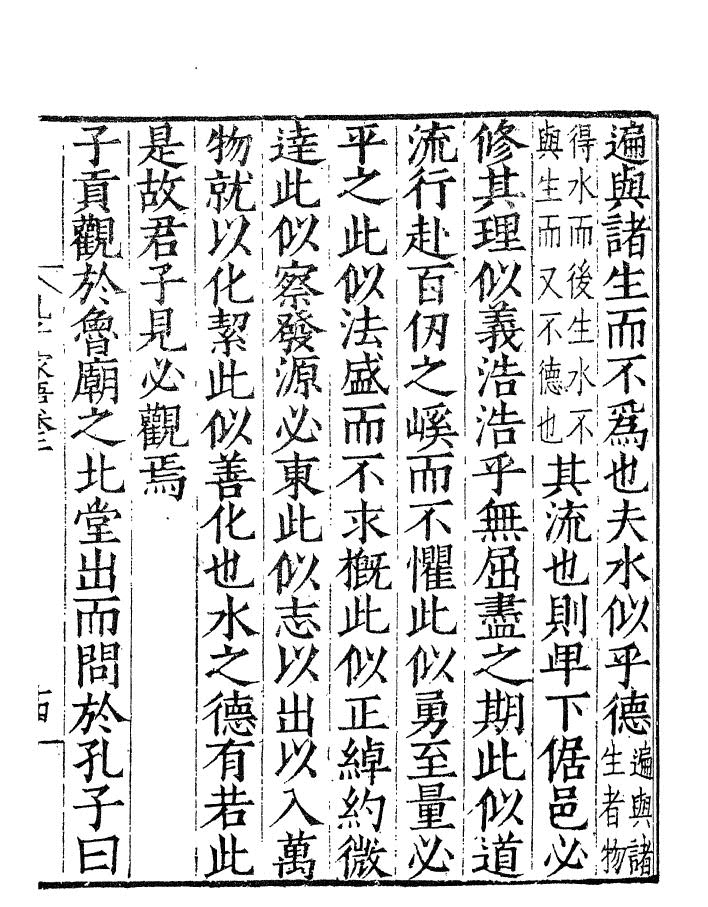 遍與諸生而不爲也夫水似乎德遍與諸生者物
得水而後生水不與生而又不德也其流也則卑下倨邑必
修其理似義浩浩乎無屈盡之期此似道
流行赴百仞之嵠而不懼此似勇至量必
平之此似法盛而不求槪此似正綽約微
達此似察發源必東此似志以出以入萬
物就以化絜此似善化也水之德有若此
是故君子見必觀焉
子貢觀於魯廟之北堂出而問於孔子曰